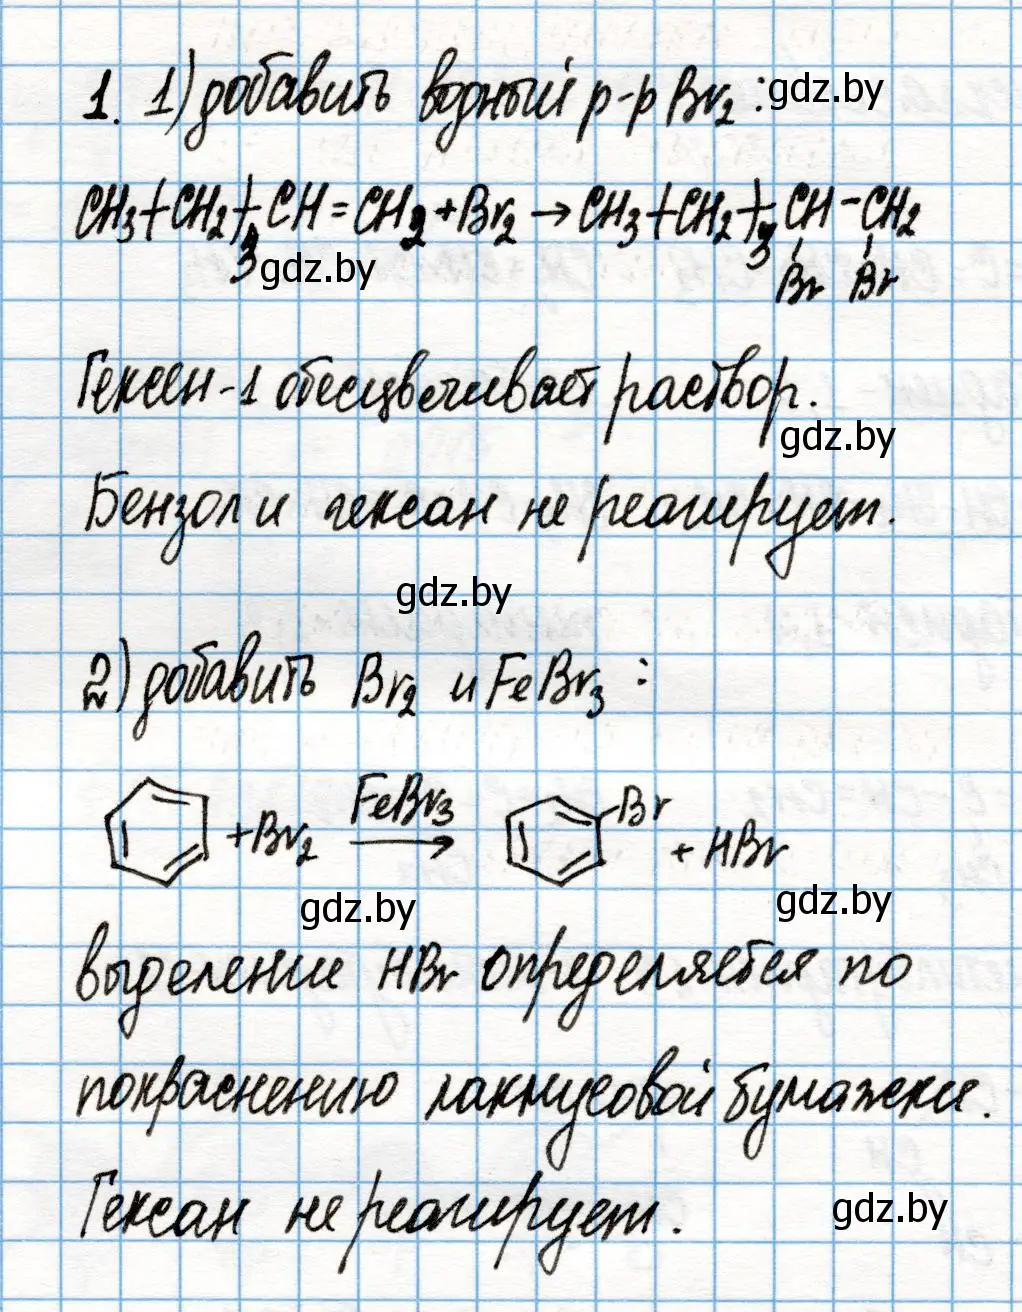 1. 1) добавить водный р-р Br2:
gdz.by
CH3-(CH2)3-CH=CH2+Br2→CH3-(CH2)3-CH-CH2
Br Br
gdz.by
Гексен-1 обесцвечивает раствор.
gdz.by
Бензол и гексан не реагирует.
gdz.by
2) добавить Br2 и FeBr3:
+Br2 FeBr3 → Br + HBr
gdz.by
gdz.by
выделение HBr определяется по
покраснению лакмусовой бумажки.
Гексан не реагирует.
gdz.by